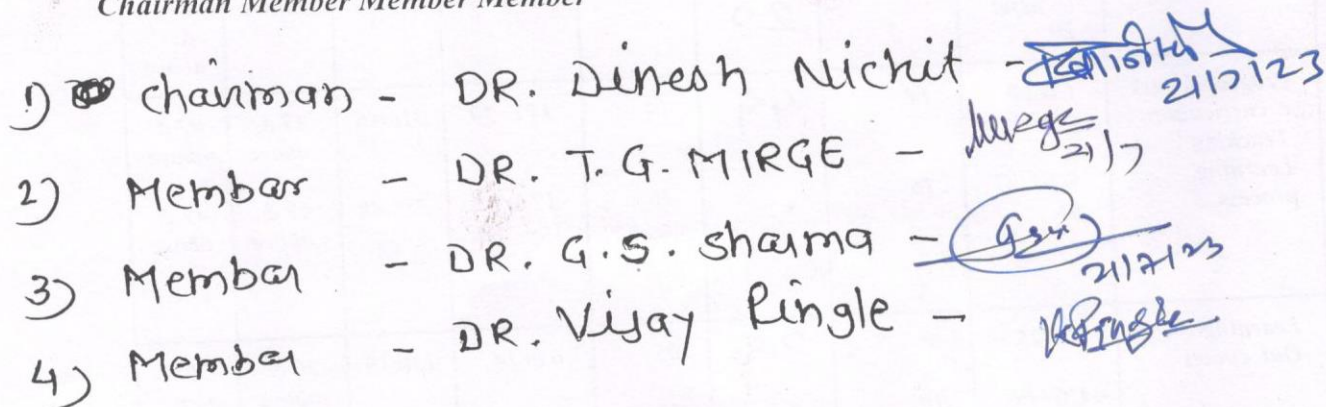 Chairman Member Member Member Member
1) Chairman - DR. Dinesh Nichit - 21/7/23
2) Member - DR. T. G. MIRGE - 21/7
3) Member - DR. G. S. Sharma - 21/7/23
4) Member - DR. Vijay Pingle -